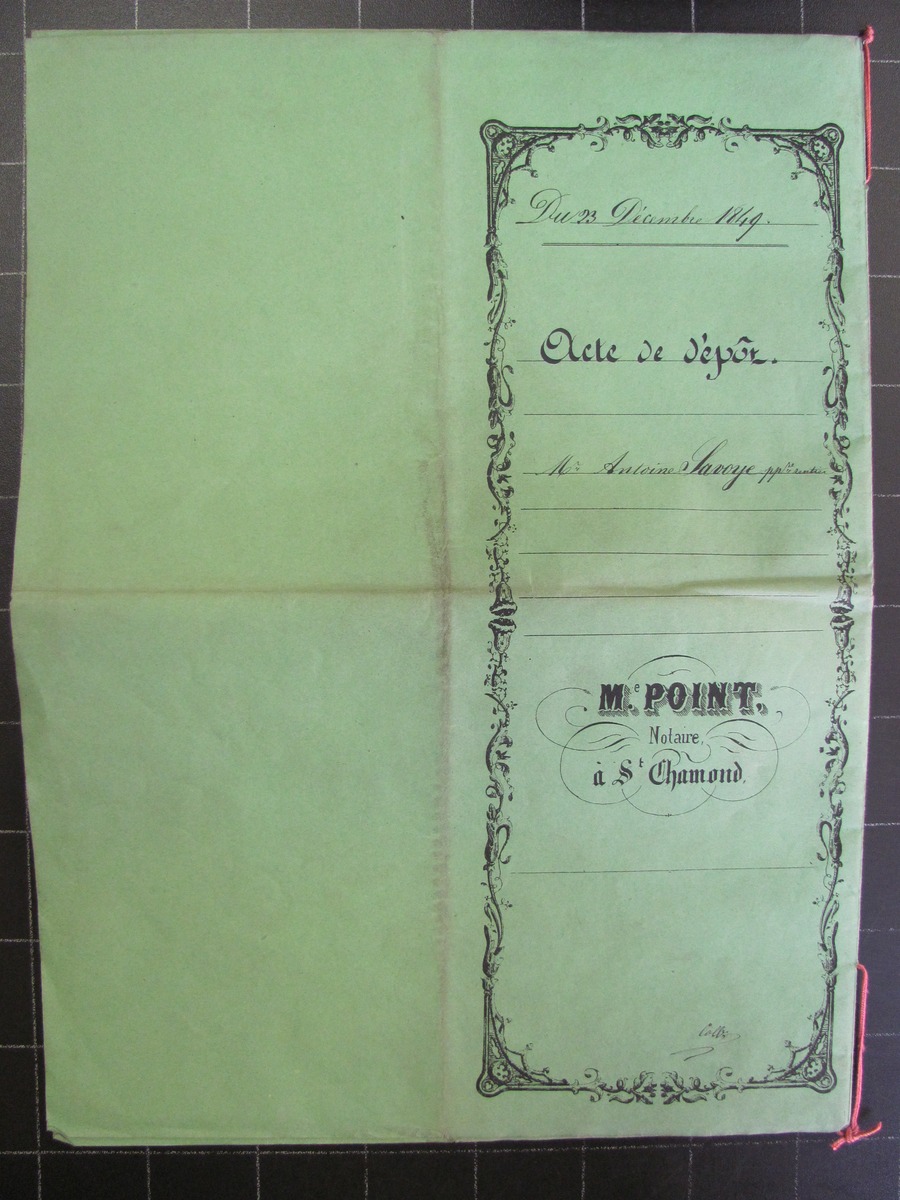 Du 23 Décembre 1849.
Acte de dépôt.
Mr Antoine Savoye
Me. POINT,
Notaire,
à St Chamond.